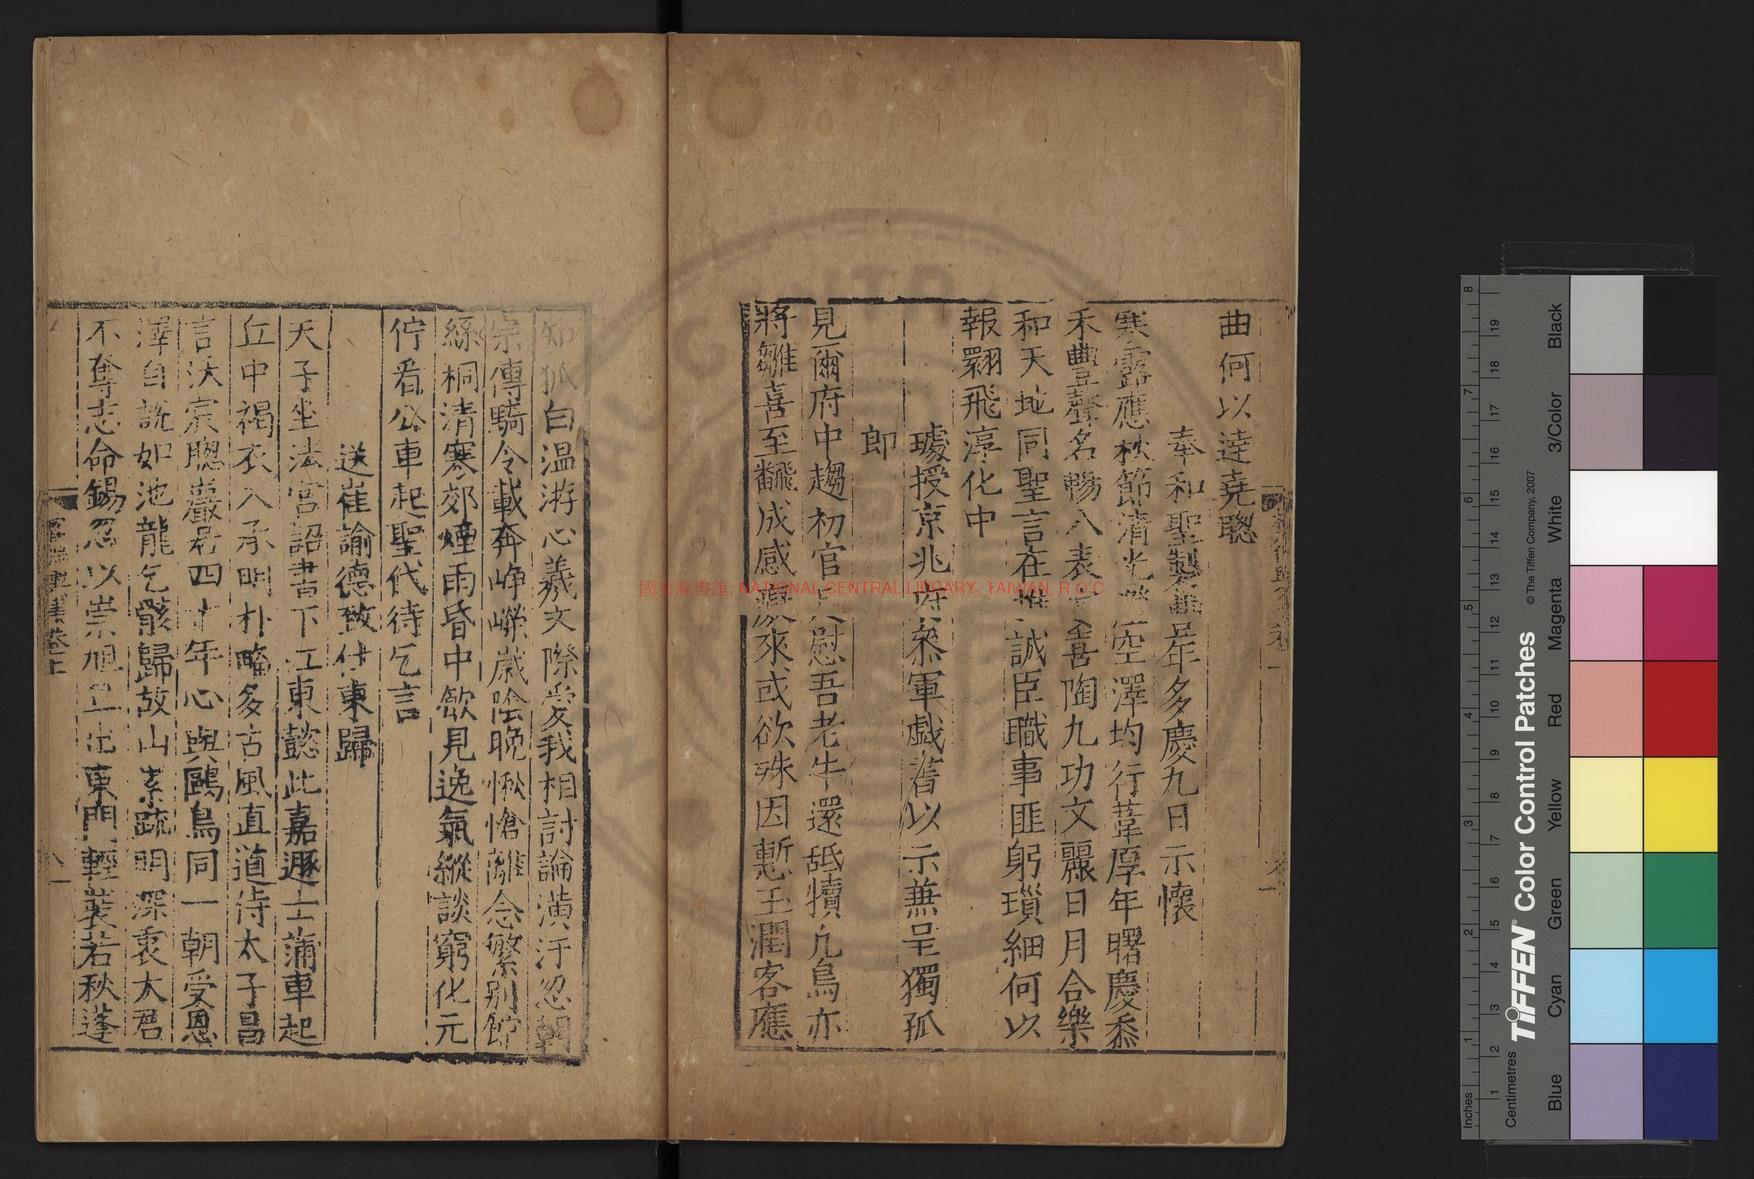 曲何以達堯聰
奉和聖製重陽日多慶九日示懷
寒露應秋節清光澄空澤均行葦厚年曙慶黍
禾豐聲名暢八表善陶九功文麗日月合樂
和天地同聖言在誠臣職事匪躬瑣細何以
報翾飛淳化中
璩授京兆府叅軍戲書以示兼呈獨孤
郎
見爾府中趨初官足慰吾老牛還舐犢凡鳥亦
將雛喜至翻成感癡來或欲殊因慙玉潤客應
知狐白温游心羲文際愛我相討論潢汙忽朝
宗傳騎令載奔崢嶸歲陰晚愀愴離念繁別館
絲桐清寒郊煙雨昏中飲見逸氣縱談窮化元
佇看公車起聖代待乞言
送崔諭德致仕東歸
天子坐法宮詔書下江東懿此嘉遯士蒲車起
丘中褐衣入承明朴略多古風直道侍太子昌
言沃宸聰巖居四十年心與鷗鳥同一朝受恩
澤自說如池龍乞骸歸故山素疏明深衷大君
不奪志命錫忽以崇旭旦出東門輕裝若秋蓬
國家圖書館, NATIONAL CENTRAL LIBRARY, TAIWAN, R.O.C
TIFFEN® Color Control Patches
© The Tiffen Company, 2007
Inches
Centimetres
Blue
Cyan
Green
Yellow
Red
Magenta
White
3/Color
Black